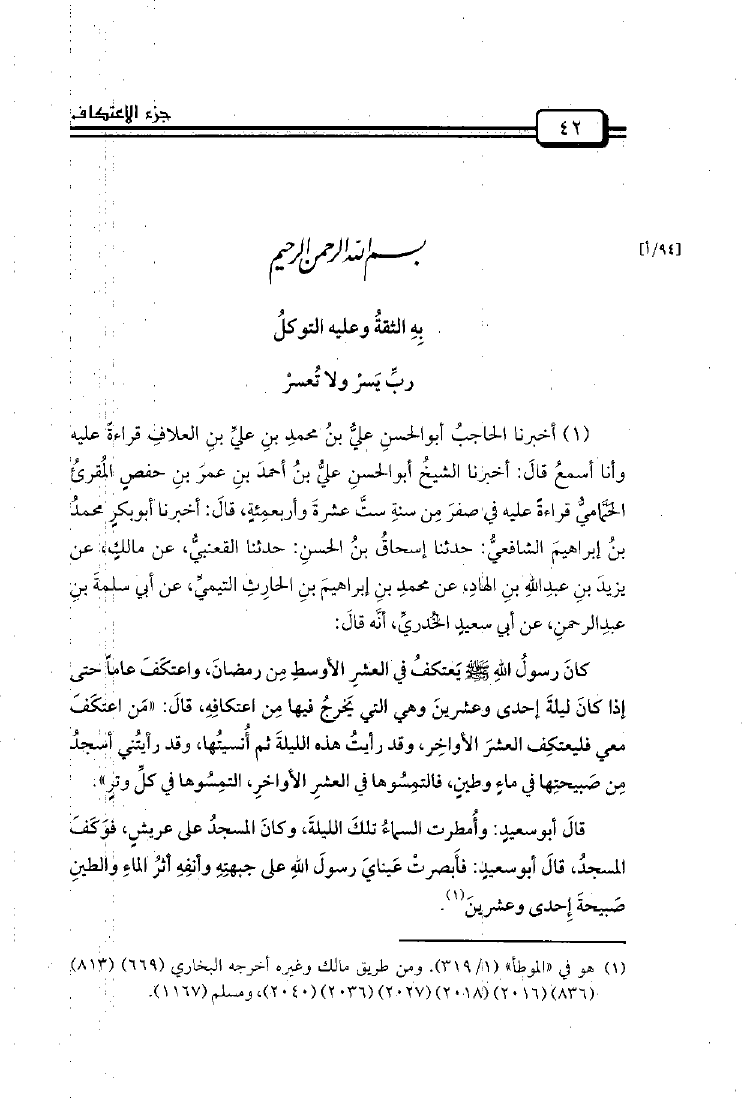 جزء الاعتكاف
٤٢
[٩٤/أ]
بسم الله الرحمن الرحيم
بِهِ الثقةُ وعليه التوكلُ
ربِّ يَسرْ ولا تُعسرْ
(١) أخبرنا الحاجبُ أبوالحسنِ عليُّ بنُ محمدِ بنِ عليِّ بنِ العلافِ قراءةً عليه
وأنا أسمعُ قالَ: أخبرنا الشيخُ أبوالحسنِ عليُّ بنُ أحمدَ بنِ عمرَ بنِ حفصٍ المُقرئُ
الحَمَّاميُّ قراءةً عليه في صفرَ مِن سنةِ ستَّ عشرةَ وأربعمِئةٍ، قالَ: أخبرنا أبوبكرٍ محمدُ
بنُ إبراهيمَ الشافعيُّ: حدثنا إسحاقُ بنُ الحسنِ: حدثنا القعنبيُّ، عن مالكٍ، عن
يزيدَ بنِ عبدِاللهِ بنِ الهادِ، عن محمدِ بنِ إبراهيمَ بنِ الحارثِ التيميِّ، عن أبي سلمةَ بنِ
عبدِالرحمنِ، عن أبي سعيدٍ الخُدريِّ، أنَّه قالَ:
كانَ رسولُ اللهِ ﷺ يَعتكفُ في العشرِ الأوسطِ مِن رمضانَ، واعتكفَ عاماً حتى
إذا كانَ ليلةَ إحدى وعشرينَ وهي التي يَخرجُ فيها مِن اعتكافِهِ، قالَ: «مَن اعتكفَ
معي فليعتكِف العشرَ الأواخِر، وقد رأيتُ هذه الليلةَ ثم أُنسيتُها، وقد رأيتُني أسجدُ
مِن صَبيحتِها في ماءٍ وطينٍ، فالتمِسُوها في العشرِ الأواخرِ، التمِسُوها في كلِّ وترٍ».
قالَ أبوسعيدٍ: وأُمطرت السماءُ تلكَ الليلةَ، وكانَ المسجدُ على عريشٍ، فوَكَفَ
المسجدُ، قالَ أبوسعيدٍ: فأَبصرتْ عَينايَ رسولَ اللهِ على جبهتِهِ وأنفِهِ أثرُ الماءِ والطينِ
صَبيحةَ إحدى وعشرينَ(١).
(١) هو في «الموطأ» (١/ ٣١٩). ومن طريق مالك وغيره أخرجه البخاري (٦٦٩) (٨١٣)
(٨٣٦) (٢٠١٦) (٢٠١٨) (٢٠٢٧) (٢٠٣٦) (٢٠٤٠)، ومسلم (١١٦٧).